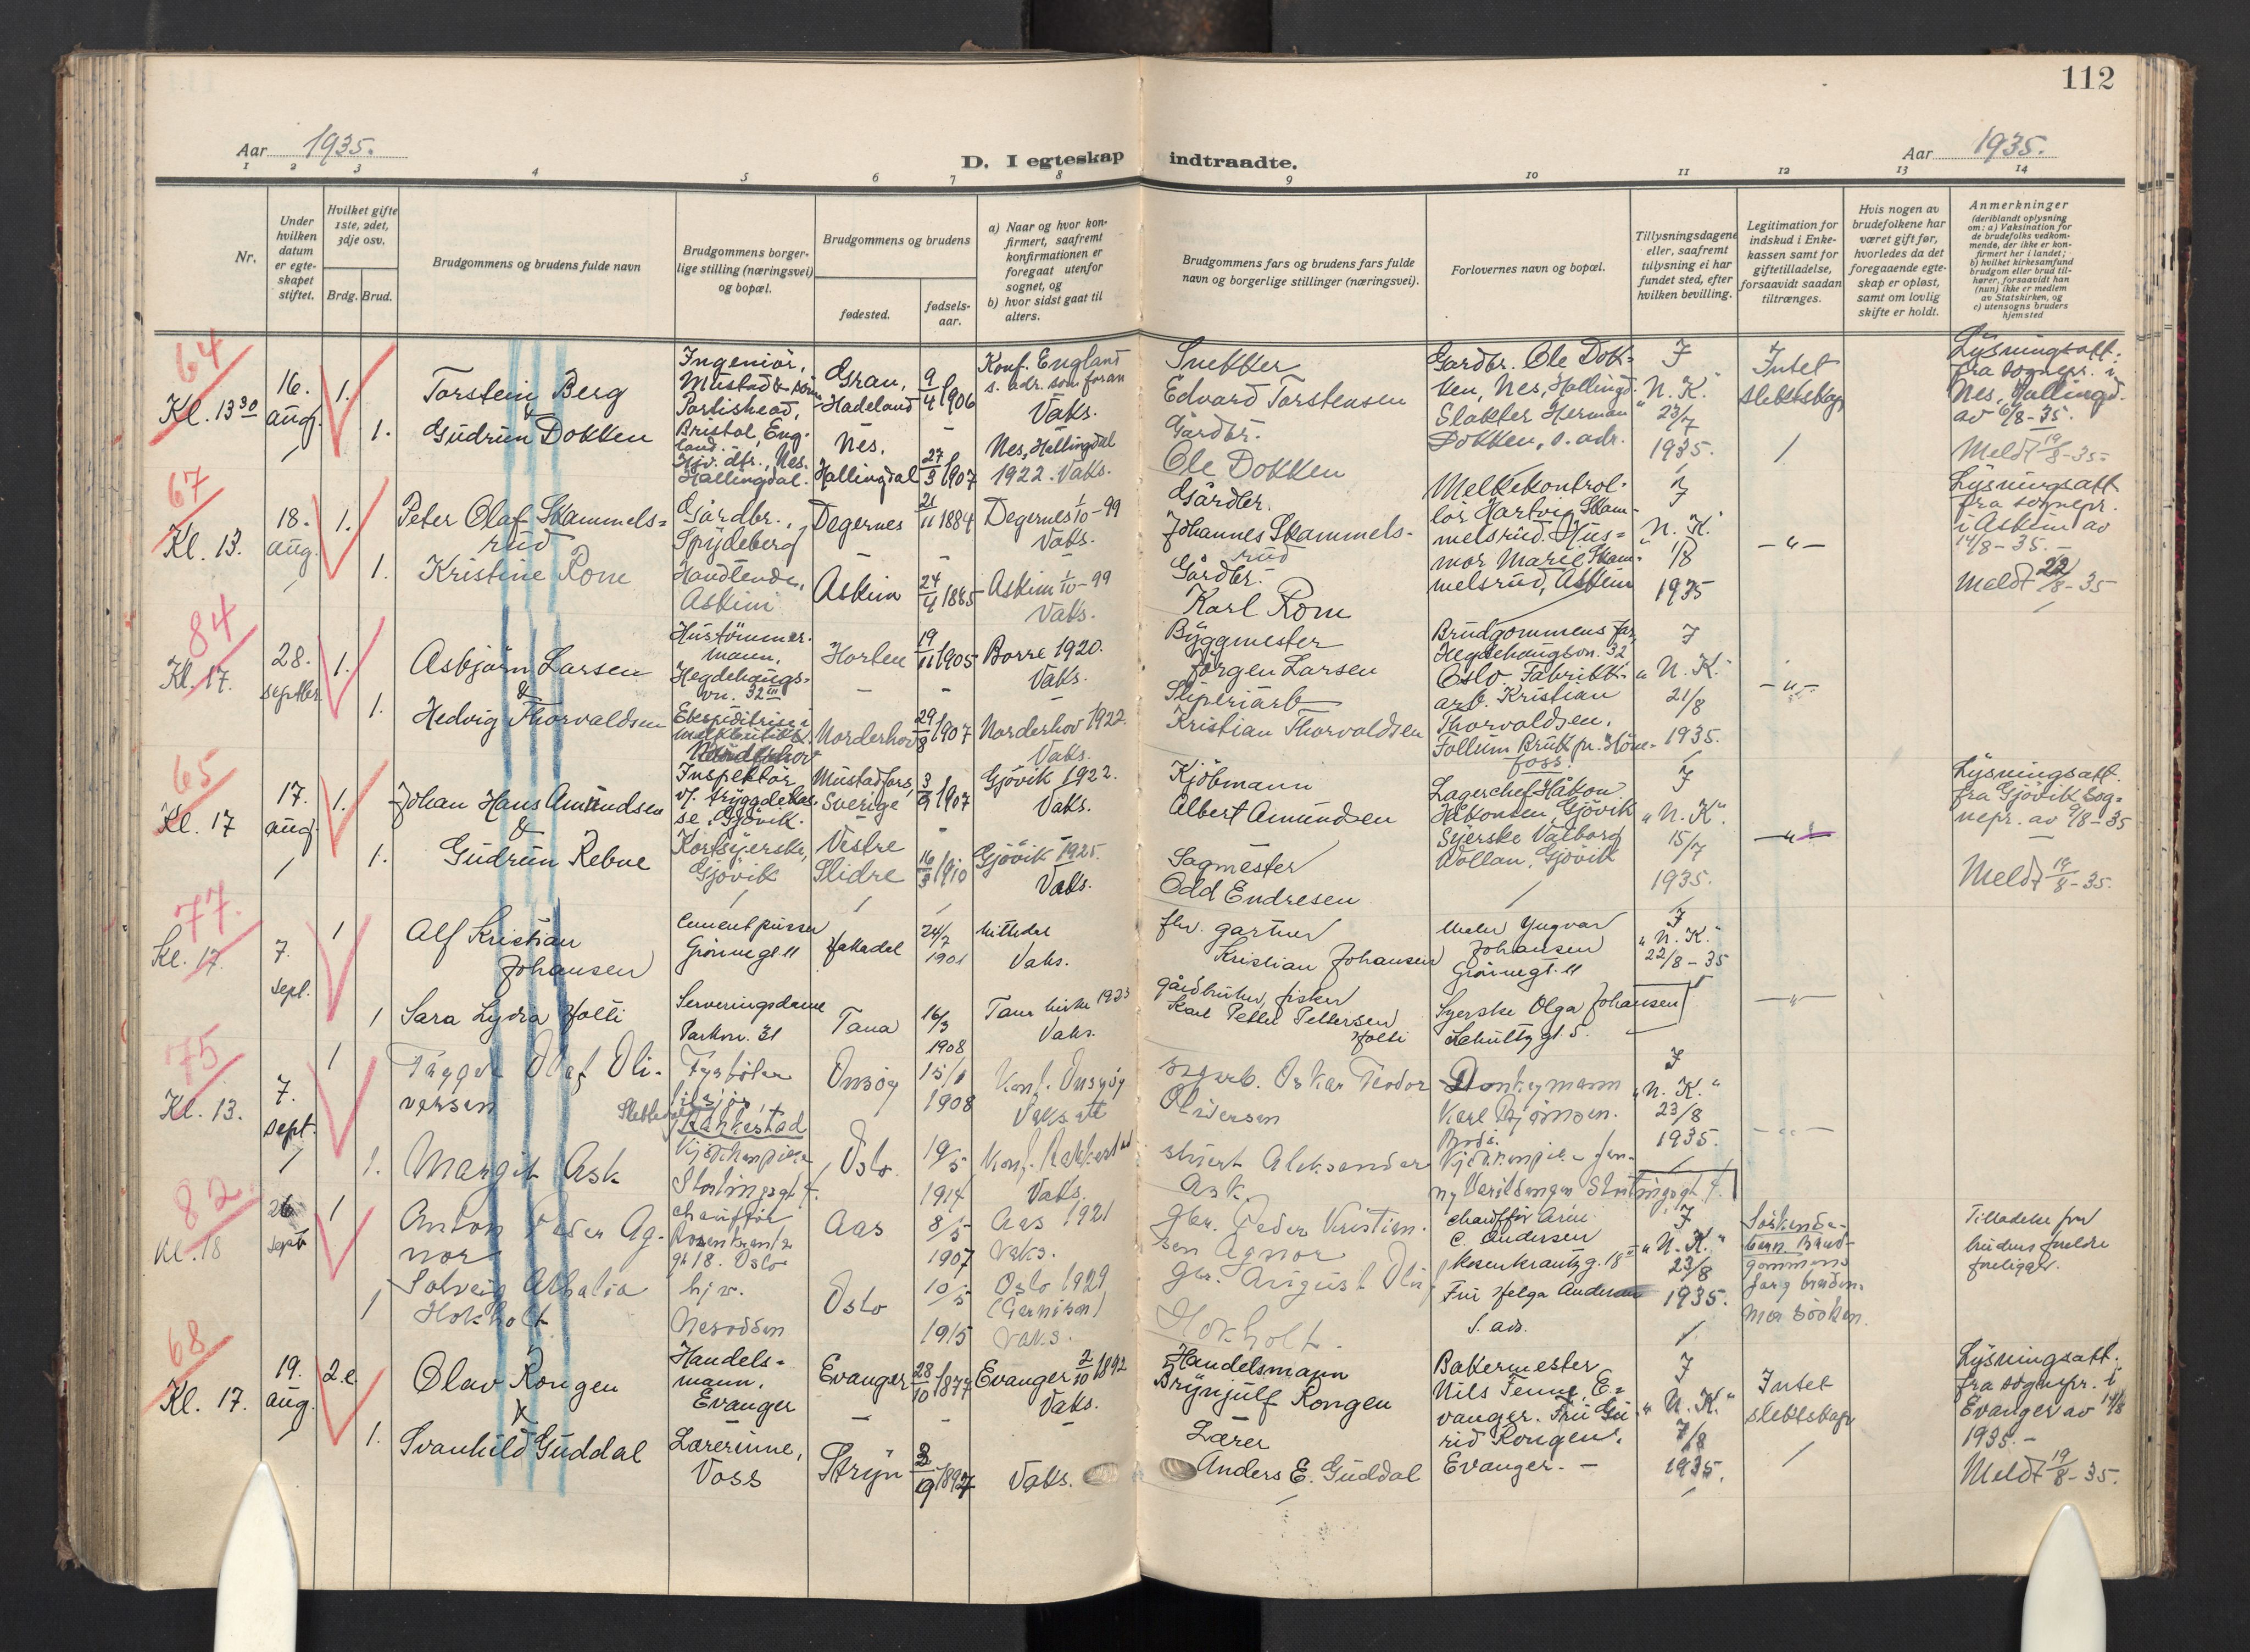 112
Aar 1935.
D. I egteskap indtraadte.
Aar 1935.
1 2 3 4 5 6 7 8 9 10 11 12 13 14
Nr.
Under hvilken datum er egte-skapet stiftet.
Hvilket gifte 1ste, 2det, 3dje osv.
Brdg. Brud.
Brudgommens og brudens fulde navn
Brudgommens borger-lige stilling (næringsvei) og bopæl.
Brudgommens og brudens
fødested.
fødsels-aar.
a) Naar og hvor kon-firmert, saafremt konfirmationen er foregaat utenfor sognet, og
b) hvor sidst gaat til alters.
Brudgommens fars og brudens fars fulde navn og borgerlige stillinger (næringsvei).
Forlovernes navn og bopæl.
Tillysningsdagene eller, saafremt tillysning ei har fundet sted, efter hvilken bevilling.
Legitimation for indskud i Enke-kassen samt for giftetilladelse, forsaavidt saadan tiltrænges.
Hvis nogen av brudefolkene har været gift før, hvorledes da det foregaaende egte-skap er opløst, samt om lovlig skifte er holdt.
Anmerkninger
(deriblandt oplysning om: a) Vaksination for de brudefolks vedkom-mende, der ikke er kon-firmert her i landet; b) hvilket kirkesamfund brudgom eller brud til-hører, forsaavidt han (hun) ikke er medlem av Statskirken, og c) utensogns bruders hjemsted
64
Kl. 13 30
16. aug.
1.
Torstein Berg
&
Ingeniør, Mustad & søn, Portishead, Bristol, Eng-land.
Gran, Hadeland
9/4 1906
Konf. England s. adr. som foran
Vaks.
Snekker
Edvard Torstensen
Gardbr. Ole Dok-ken, Nes, Hallingd.
Slakter Herman Dokken, s. adr.
I "N. K." 23/7 1935.
Intet slektskap
Lysningsatt. fra sognepr. i Nes, Hallingd. av 6/8-35.
Meldt 19/8-35
1.
Gudrun Dokken
Hjv. dtr., Nes. Hallingdal.
Nes, Hallingdal
27/3 1907
Nes, Hallingdal 1922. Vaks.
Gårdbr.
Ole Dokken
67
Kl. 13.
18. aug.
1.
Peter Olaf Skammels=rud
Gårdbr., Spydeberg
Degernes
21/11 1884
Degernes 1/10-99
Vaks.
Gårdbr.
Johannes Skammels-rud
Melkekontrol-lør Hartvig Skam-melsrud. Hus=mor Marie Skam-melsrud, Askim
I "N. K." 1/8 1935
-"-
Lysningsatt. fra sognepr. i Askim av 14/8-35.
Meldt 22/8-35
1.
Kristine Rom
Handlende, Askim
Askim
24/4 1885
Askim 1/10-99
Vaks.
Gårdbr.
Karl Rom
84
Kl. 17.
28. septbr.
1.
Asbjørn Larsen
&
Hustømmer-mann, Hegdehaugs=vn. 32 III
Horten
19/11 1905
Borre 1920.
Vaks.
Byggmester
Jørgen Larsen
Brudgommens far, Hegdehaugsvn. 32 Oslo. Fabrikk-arb. Kristian Thorvaldsen, Follum Bruk pr. Høne-foss.
I "N. K." 21/8 1935.
-"-
1.
Hedvig Thorvaldsen
Norderhov
29/8 1907
Norderhov 1922.
Vaks.
Sliperiarb.
Kristian Thorvaldsen
65
Kl. 17
17. aug.
1.
Johan Hans Amundsen
&
Inspektør v/ tryggdekas-se, Gjøvik.
Mustadfors, Sverige
3/9 1907
Gjøvik 1922.
Vaks.
Kjøbmann
Albert Amundsen
Lagerchef Håkon Håkonsen, Gjøvik
Syerske Valborg Wollan, Gjøvik
I "N. K." 15/7 1935.
-"-
Lysningsatt. fra Gjøvik sog=nepr. av 9/8-35
Meldt 19/8-35.
1.
Gudrun Rebne
Gjøvik
Vestre Slidre
16/3 1910
Gjøvik 1925.
Vaks.
Sagmester
Odd Endresen
77.
Kl. 17.
7. sept.
1
Alf Kristian Johansen
Cementpusser
Grønnegt 11
Hakadal
24/7 1901
Nittedal
Vaks.
fhv. gartner
Kristian Johansen
Maler Yngvar Johansen
Grønnegt. 11
I "N. K." 22/8-35
1
Sara Lydia Holti
Serveringsdame
Parkvn. 31
Tana
16/3 1908
Tana kirke 1923
Vaks.
gårdbruker, fisker
Karl Petter Pettersen Holti
Syerske Olga Johansen
Schultzgt. 5.
-"-
75
Kl. 13.
7. sept.
1
Olaf Oli-versen
Fyrbøter
Rakkestad
Onsøy
15/1 1908
Konf. Onsøy
Vaks.
Oskar Teodor Oliversen
Donkeymann
Karl Bjørnsen.
I "N. K." 23/8 1935.
1.
Margit Ask
Stortingsgt 4.
Oslo.
19/5 1914
Konf. Rakkestad
Vaks.
Aleksander Ask.
82.
Kl. 18
26 sept
1
Anton Peder Ag-nor
chauffør
Rosenkrantz gt 18. Oslo
Aas
8/5 1907
Aas 1921
Vaks.
Gbr. Peder Kristian-sen Agnor
chauffør Arne C. Andersen
Rosenkrantzg. 18 II
Fru Helga Andersen
S. ads.
I "N. K." 23/8 1935.
Tilladelse fra brudens foreldre foreligger.
1
Solveig Athalia Hokholt
hjv.
Nesodden
Oslo
10/5 1915
Oslo 1929
(Garnison)
Vaks.
Gbr. August Olaf Hokholt.
68
Kl. 17.
19. aug.
2.
Olav Rongen
&
Handels=mann, Evanger
Evanger
28/10 1877
Evanger 2/10 1892
Vaks.
Handelsmann
Brynjulf Rongen
Bakermester Nils Tenne, E=vanger. Fru Gu-rid Rongen, Evanger. -
I "N. K." 7/8 1935.
Intet slektskap
Lysningsatt. fra sognepr. i Evanger av 14/8 1935. -
Meldt 19/8-35.
1.
Svanhild Guddal
Lærerinne, Voss
Stryn
Vaks.
Lærer
Anders E. Guddal